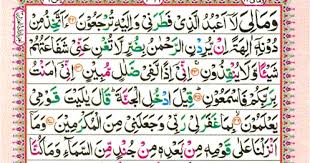 وَمَا لِيَ لَآ اَعْبُدُ الَّذِيْ فَطَرَنِيْ وَاِلَيْهِ تُرْجَعُوْنَ ءَاَتَّخِذُ مِنْ
دُوْنِهٖٓ اٰلِهَةً اِنْ يُّرِدْنِ الرَّحْمٰنُ بِضُرٍّ لَّا تُغْنِ عَنِّيْ شَفَاعَتُهُمْ
شَيْـًٔا وَّلَا يُنْقِذُوْنِ اِنِّيْٓ اِذًا لَّفِيْ ضَلٰلٍ مُّبِيْنٍ اِنِّيْٓ اٰمَنْتُ
بِرَبِّكُمْ فَاسْمَعُوْنِ قِيْلَ ادْخُلِ الْجَنَّةَ قَالَ يٰلَيْتَ قَوْمِيْ
يَعْلَمُوْنَ بِمَا غَفَرَ لِيْ رَبِّيْ وَجَعَلَنِيْ مِنَ الْمُكْرَمِيْنَ وَمَآ
اَنْزَلْنَا عَلٰى قَوْمِهٖ مِنْۢ بَعْدِهٖ مِنْ جُنْدٍ مِّنَ السَّمَآءِ وَمَا